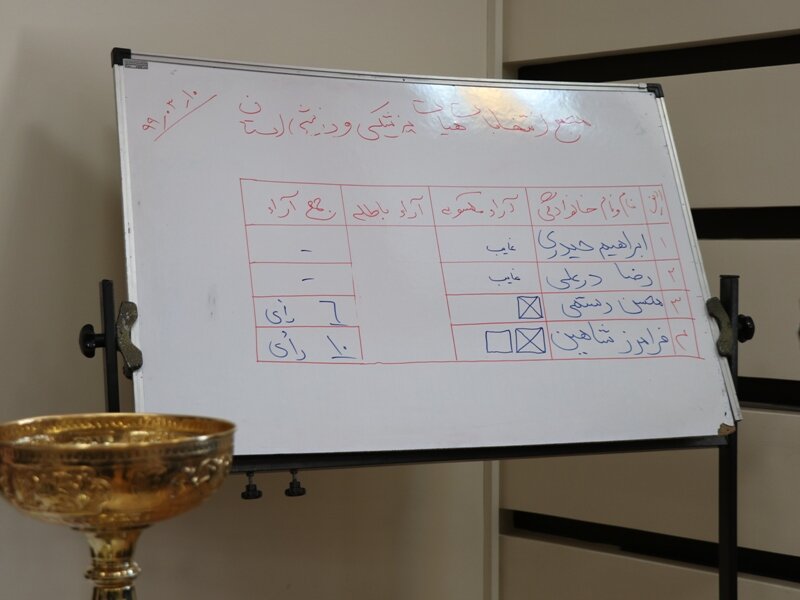 مجمع انتخابات هیات پزشکی ورزشی استان
۹۹٫۰۳٫۱۰
ردیف نام و نام خانوادگی آراء مکتوبه آراء باطله جمع آراء
۱ ابراهیم حیدری غایب -
۲ رضا درعلی غایب -
۳ محسن رستمی ٦ رأی
۴ فرامرز شاهین ۱۰ رأی